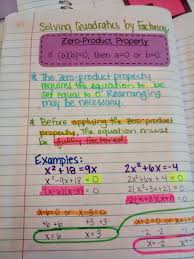 Solving Quadratics by Factoring
Zero-Product Property
If (a)(b)=0, then a=0 or b=0.
* The zero-product property
requires the equation to be
set equal to 0. Rearranging
may be necessary.
* Before applying the zero-product
property, the equation must
be fully factored.
Examples:
x²+18=9x 2x²+6x=-4
x²-9x+18=0 2x²+6x+4=0
(x-6)(x-3)=0 2(x²+3x+2)=0
2(x+2)(x+1)=0
x-6=0 or x-3=0 x+2=0 or x+1=0
+6 +6 +3 +3 -2 -2
x=6 x=3 x=-2 x=-1